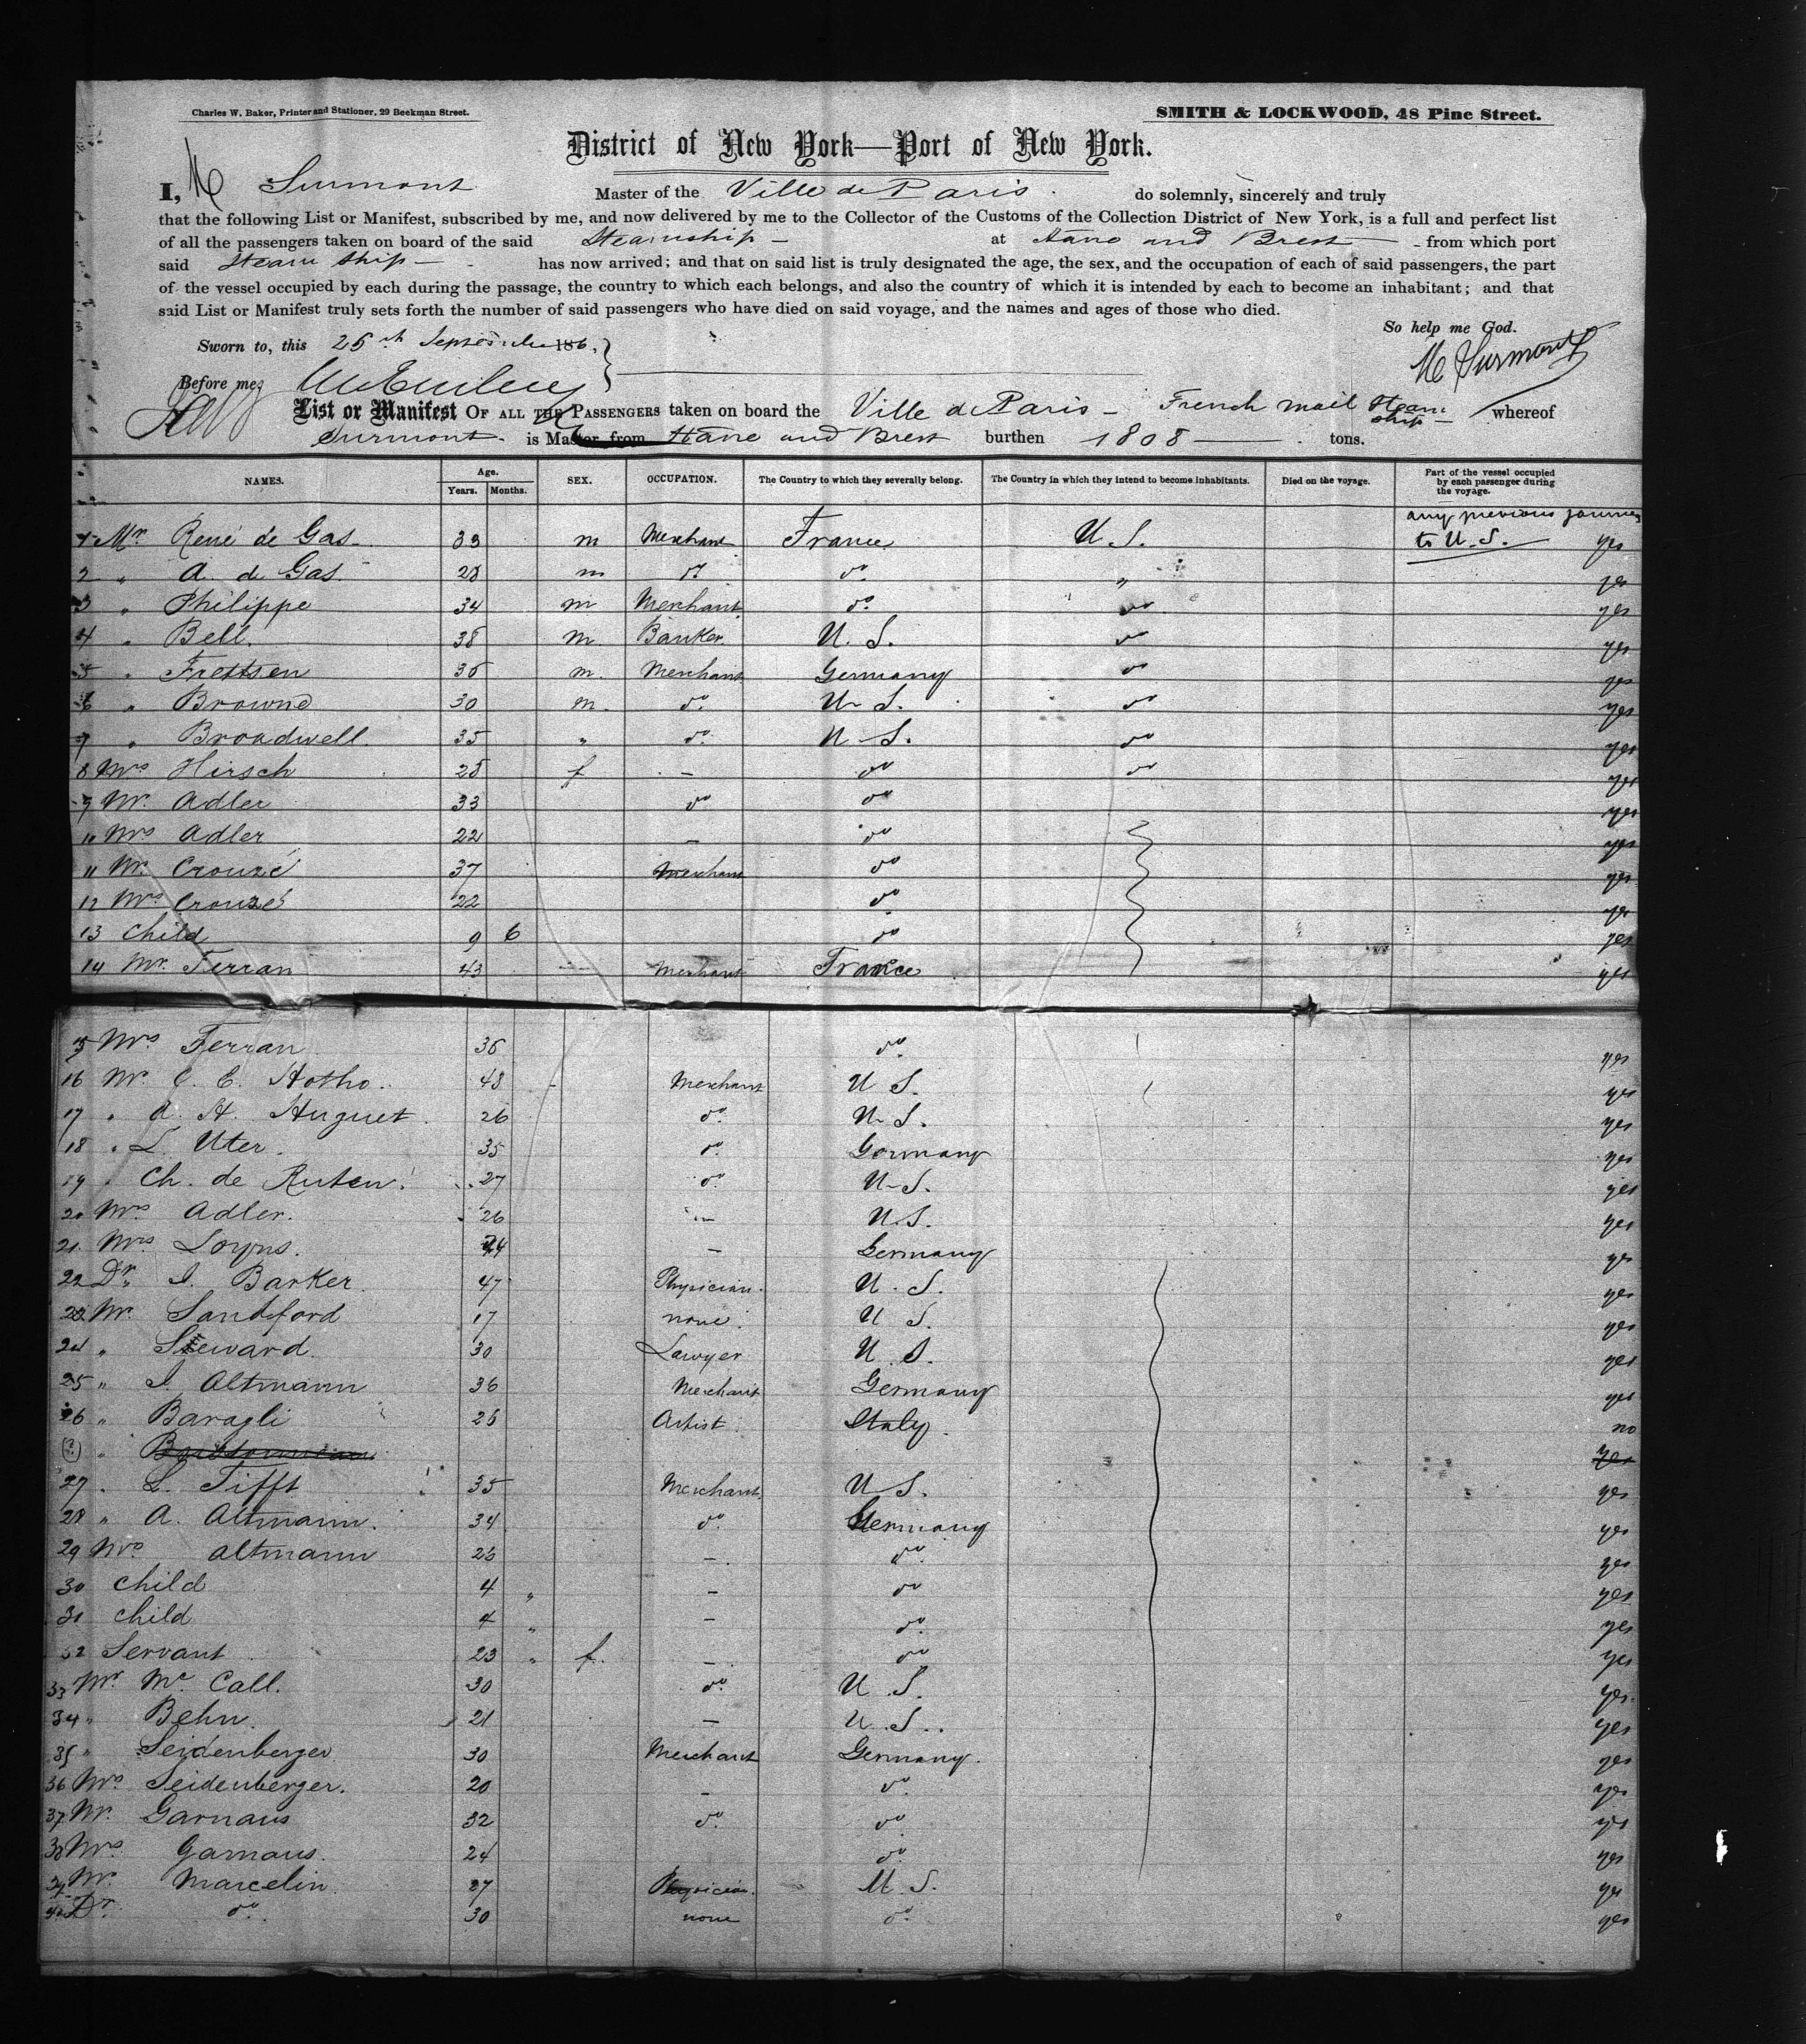 Charles W. Baker, Printer and Stationer, 29 Beekman Street.
SMITH & LOCKWOOD, 48 Pine Street.
District of New York—Port of New York.
I, Surmont Master of the Ville de Paris do solemnly, sincerely and truly
that the following List or Manifest, subscribed by me, and now delivered by me to the Collector of the Customs of the Collection District of New York, is a full and perfect list
of all the passengers taken on board of the said Steamship — at Havre and Brest — from which port
said Steam ship — has now arrived; and that on said list is truly designated the age, the sex, and the occupation of each of said passengers, the part
of the vessel occupied by each during the passage, the country to which each belongs, and also the country of which it is intended by each to become an inhabitant; and that
said List or Manifest truly sets forth the number of said passengers who have died on said voyage, and the names and ages of those who died.
So help me God.
Sworn to, this 25th September 186
Surmont
Before me,
List or Manifest OF ALL THE PASSENGERS taken on board the Ville de Paris — French mail Steam ship — whereof
Surmont — is Master, from Havre and Brest burthen 1808 — tons.
NAMES. Age. Years. Months. SEX. OCCUPATION. The Country to which they severally belong. The Country in which they intend to become inhabitants. Died on the voyage. Part of the vessel occupied by each passenger during the voyage.
any previous journey
1 Mr René de Gas 33 m Merchant France U.S. to U.S. yes
2 " A. de Gas 28 m do do " yes
3 " Philippe 34 m Merchant do do yes
4 " Bell 38 m Banker U.S. do yes
5 " Frettsen 35 m. Merchant Germany do yes
6 " Browne 30 m. do U.S. do yes
7 " Broadwell 35 " do U.S. do yes
8 Mrs Hirsch 25 f — do do yes
9 Mr. Adler 33 do do yes
10 Mrs Adler 22 — do yes
11 Mr. Crouzé 37 Merchant do yes
12 Mrs Crouzé 22 do yes
13 Child 9 6 do yes
14 Mr. Ferran 43 Merchant France yes
15 Mrs Ferran 35 do yes
16 Mr. C. E. Hotho 48 Merchant U.S. yes
17 " A. H. Huguet 26 do U.S. yes
18 " L. Uter 35 do Germany yes
19 " Ch. de Ruten 27 do U.S. yes
20 Mrs Adler. 26 — U.S. yes
21 Mrs 24 — Germany yes
22 Dr. I. Barker 47 Physician. U.S. yes
23 Mr. Sandford 17 none. U.S. yes
24 " Steward 30 Lawyer U.S. yes
25 " I. Altmann 36 Merchant Germany yes
26 " Baragli 25 Artist Italy. no
" yes
27 " L. Tifft 35 Merchant U.S. yes
28 " A. Altmann. 34 do Germany yes
29 Mrs Altmann 26 — do yes
30 Child 4 " — do yes
31 Child 4 " — do yes
32 Servant 23 " f. — do yes
33 Mr. Mc Call. 30 do U.S. yes
34 " Behn. 21 — U.S. yes
35 " Seidenberger 30 Merchant Germany. yes
36 Mrs Seidenberger. 20 — do yes
37 Mr. Garnaus 32 do do yes
38 Mrs Garnaus. 24 do yes
39 Mr. Marcelin 27 Physician. U.S. yes
40 Dr. do 30 none do yes